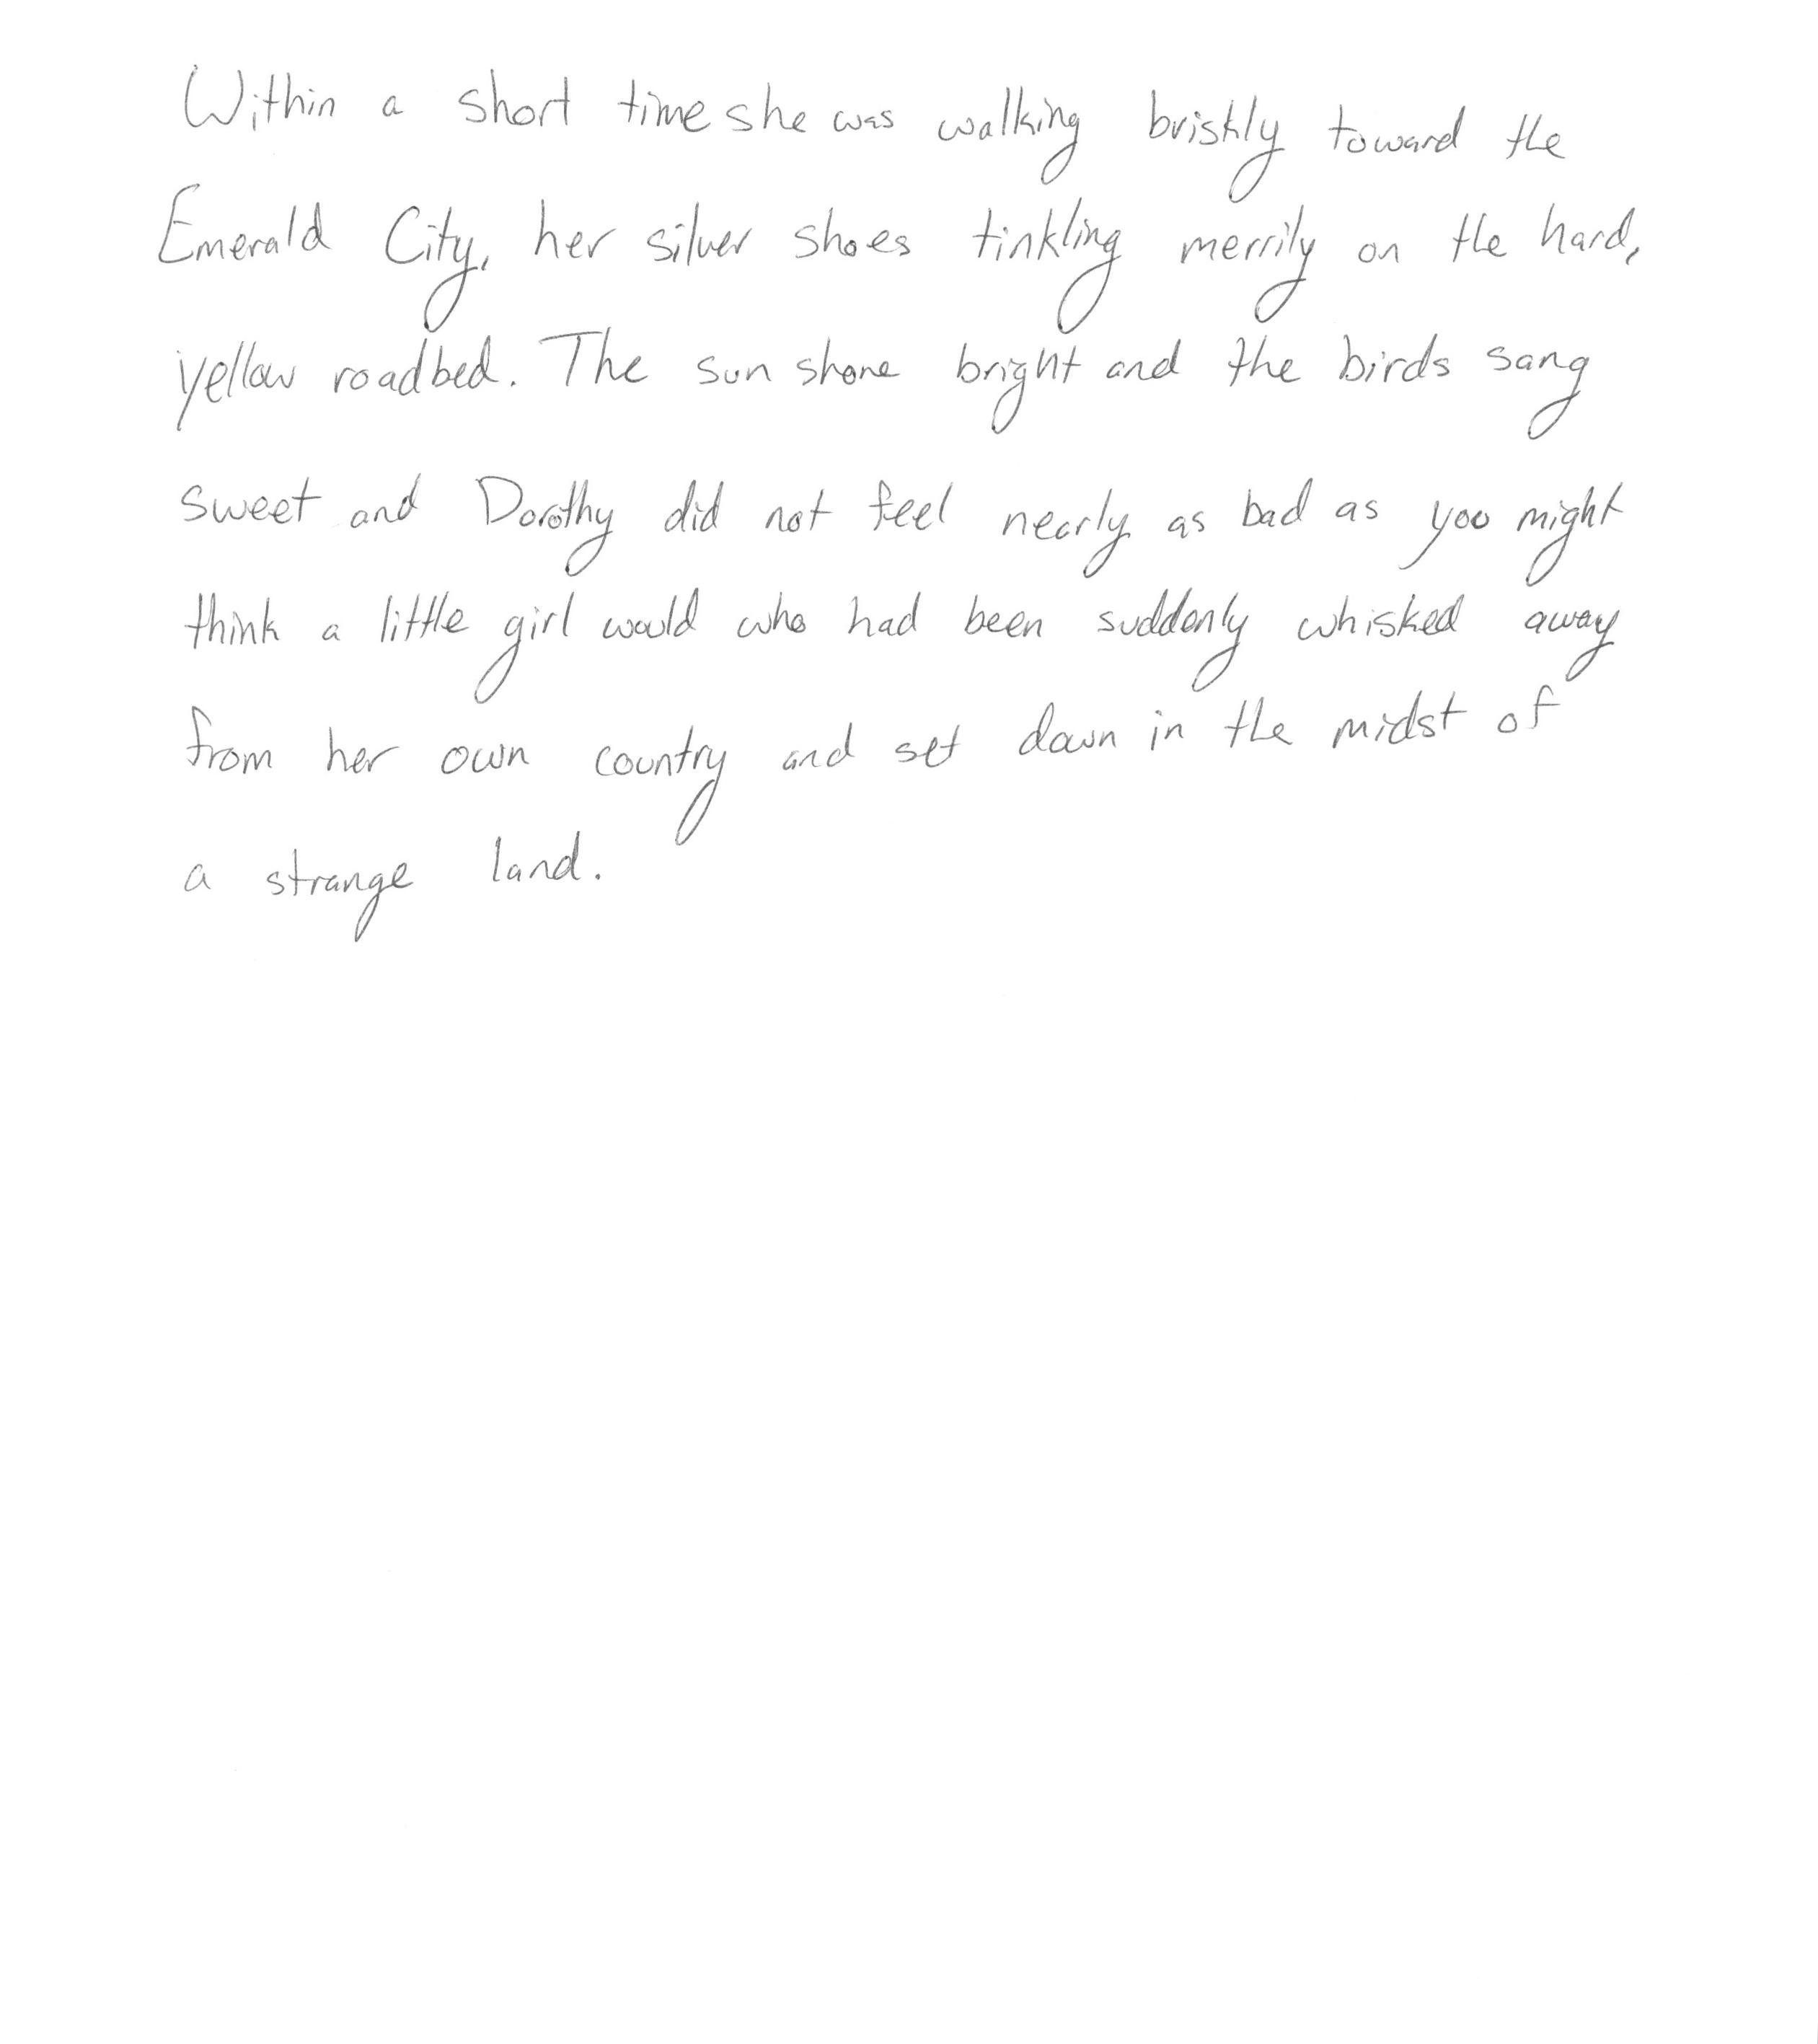 Within a short time she was walking briskly toward the
Emerald City, her silver shoes tinkling merrily on the hard,
yellow roadbed. The sun shone bright and the birds sang
sweet and Dorothy did not feel nearly as bad as you might
think a little girl would who had been suddenly whisked away
from her own country and set down in the midst of
a strange land.